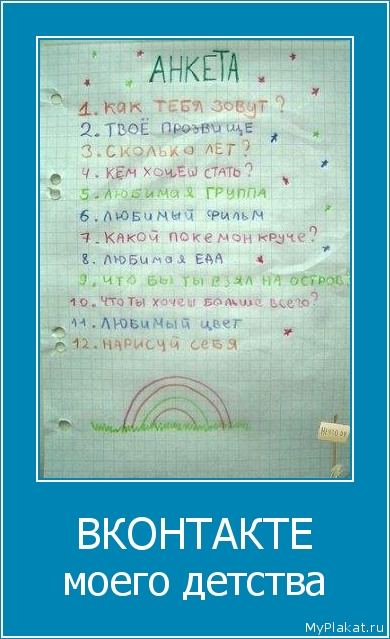 АНКЕТА
1. КАК ТЕБЯ ЗОВУТ?
2. ТВОЁ ПРОЗВИЩЕ
3. СКОЛЬКО ЛЕТ?
4. КЕМ ХОЧЕШ СТАТЬ?
5. ЛЮБИМАЯ ГРУППА
6. ЛЮБИМЫЙ ФИЛЬМ
7. КАКОЙ ПОКЕМОН КРУЧЕ?
8. ЛЮБИМАЯ ЕДА
9. ЧТО БЫ ТЫ ВЗЯЛ НА ОСТРОВ?
10. ЧТО ТЫ ХОЧЕШ БОЛЬШЕ ВСЕГО?
11. ЛЮБИМЫЙ ЦВЕТ
12. НАРИСУЙ СЕБЯ
ВКОНТАКТЕ
моего детства
MyPlakat.ru